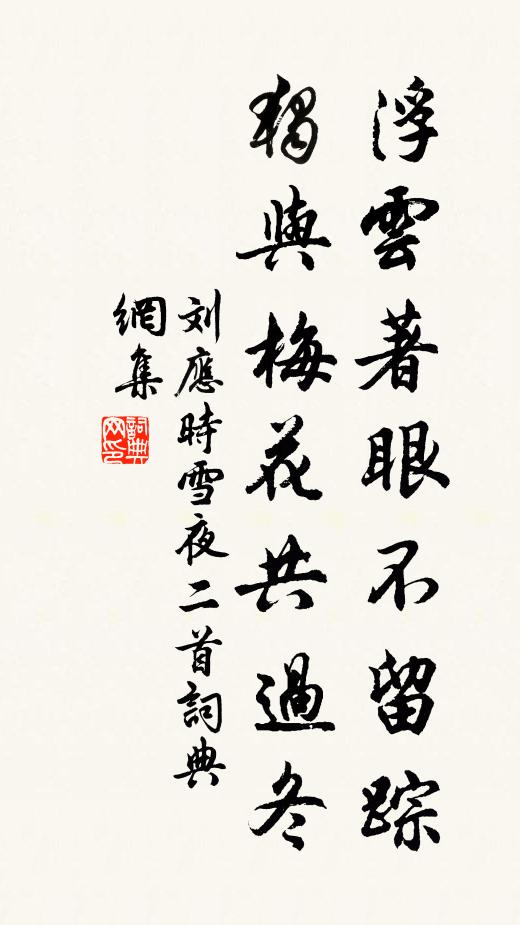 浮雲著眼不留踪
獨與梅花共過冬
刘應時雪夜二首詞典
網集
詞典
网印